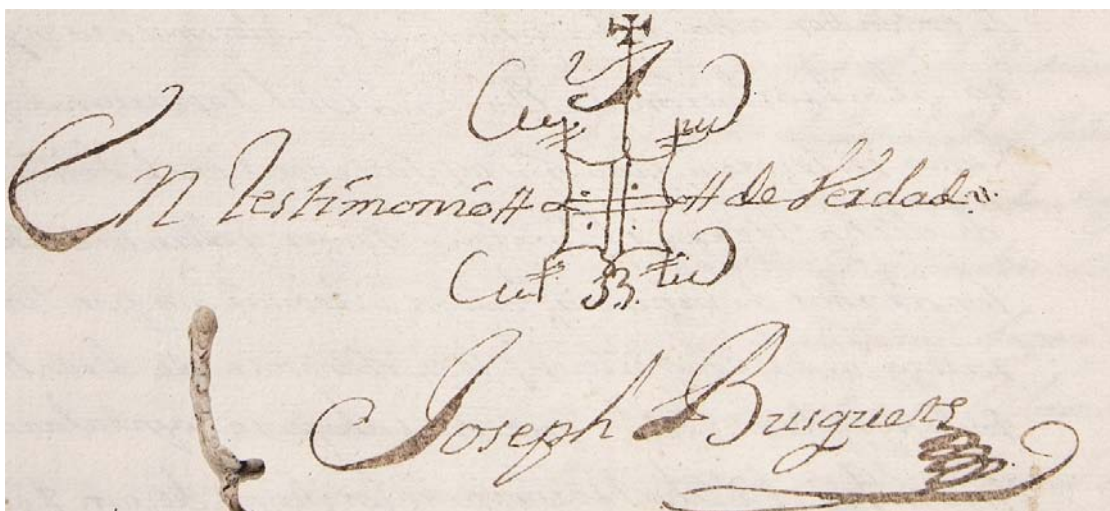 En Testimonio de Verdad
Joseph Busquets